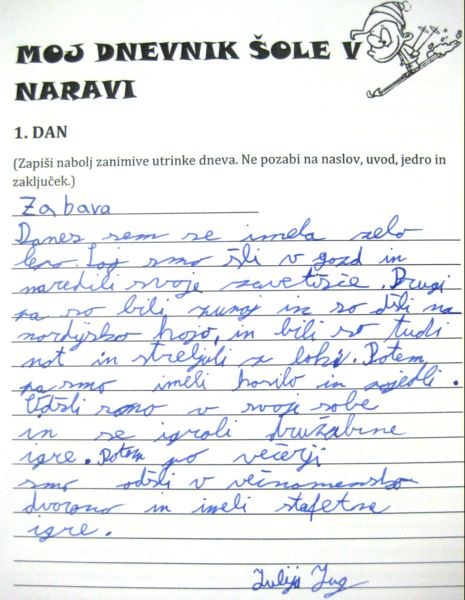 MOJ DNEVNIK ŠOLE V
NARAVI
1. DAN
(Zapiši nabolj zanimive utrinke dneva. Ne pozabi na naslov, uvod, jedro in
zaključek.)
Zabava
Danes sem se imela zelo
lepo. smo šli v gozd in
naredili svoje zavetišče. Drugi
pa so bili zunaj in so odšli na
nordijsko hojo, in bili so tudi
not in streljali z loki. Potem
pa smo imeli kosilo in pojedli.
Odšli smo v svoje sobe
in se igrali družabne
igre. Potem po večerji
smo odšli v večnamensko
dvorano in imeli štafetne
igre.
Julija Jug